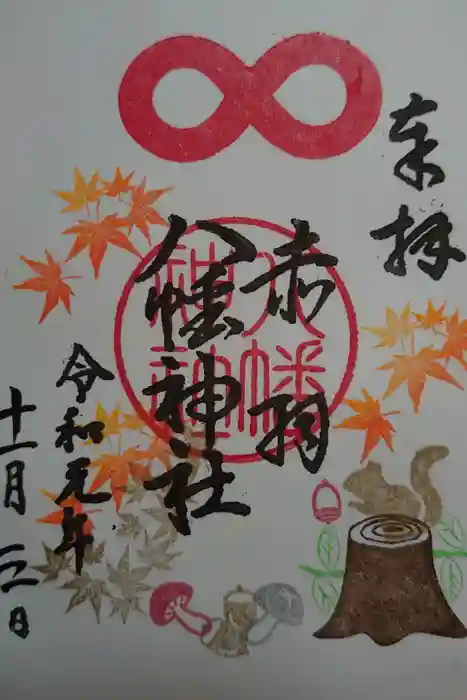 奉拝
赤羽
八幡神社
八幡
神社
令和元年
十一月二日